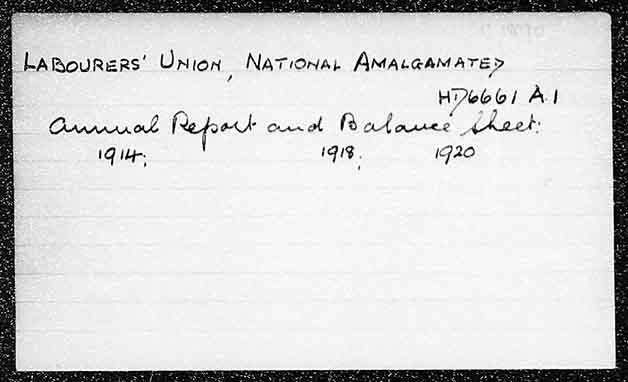 LABOURERS' UNION, NATIONAL AMALGAMATED
HD6661 A1
Annual Report and Balance Sheet:
1914; 1918; 1920